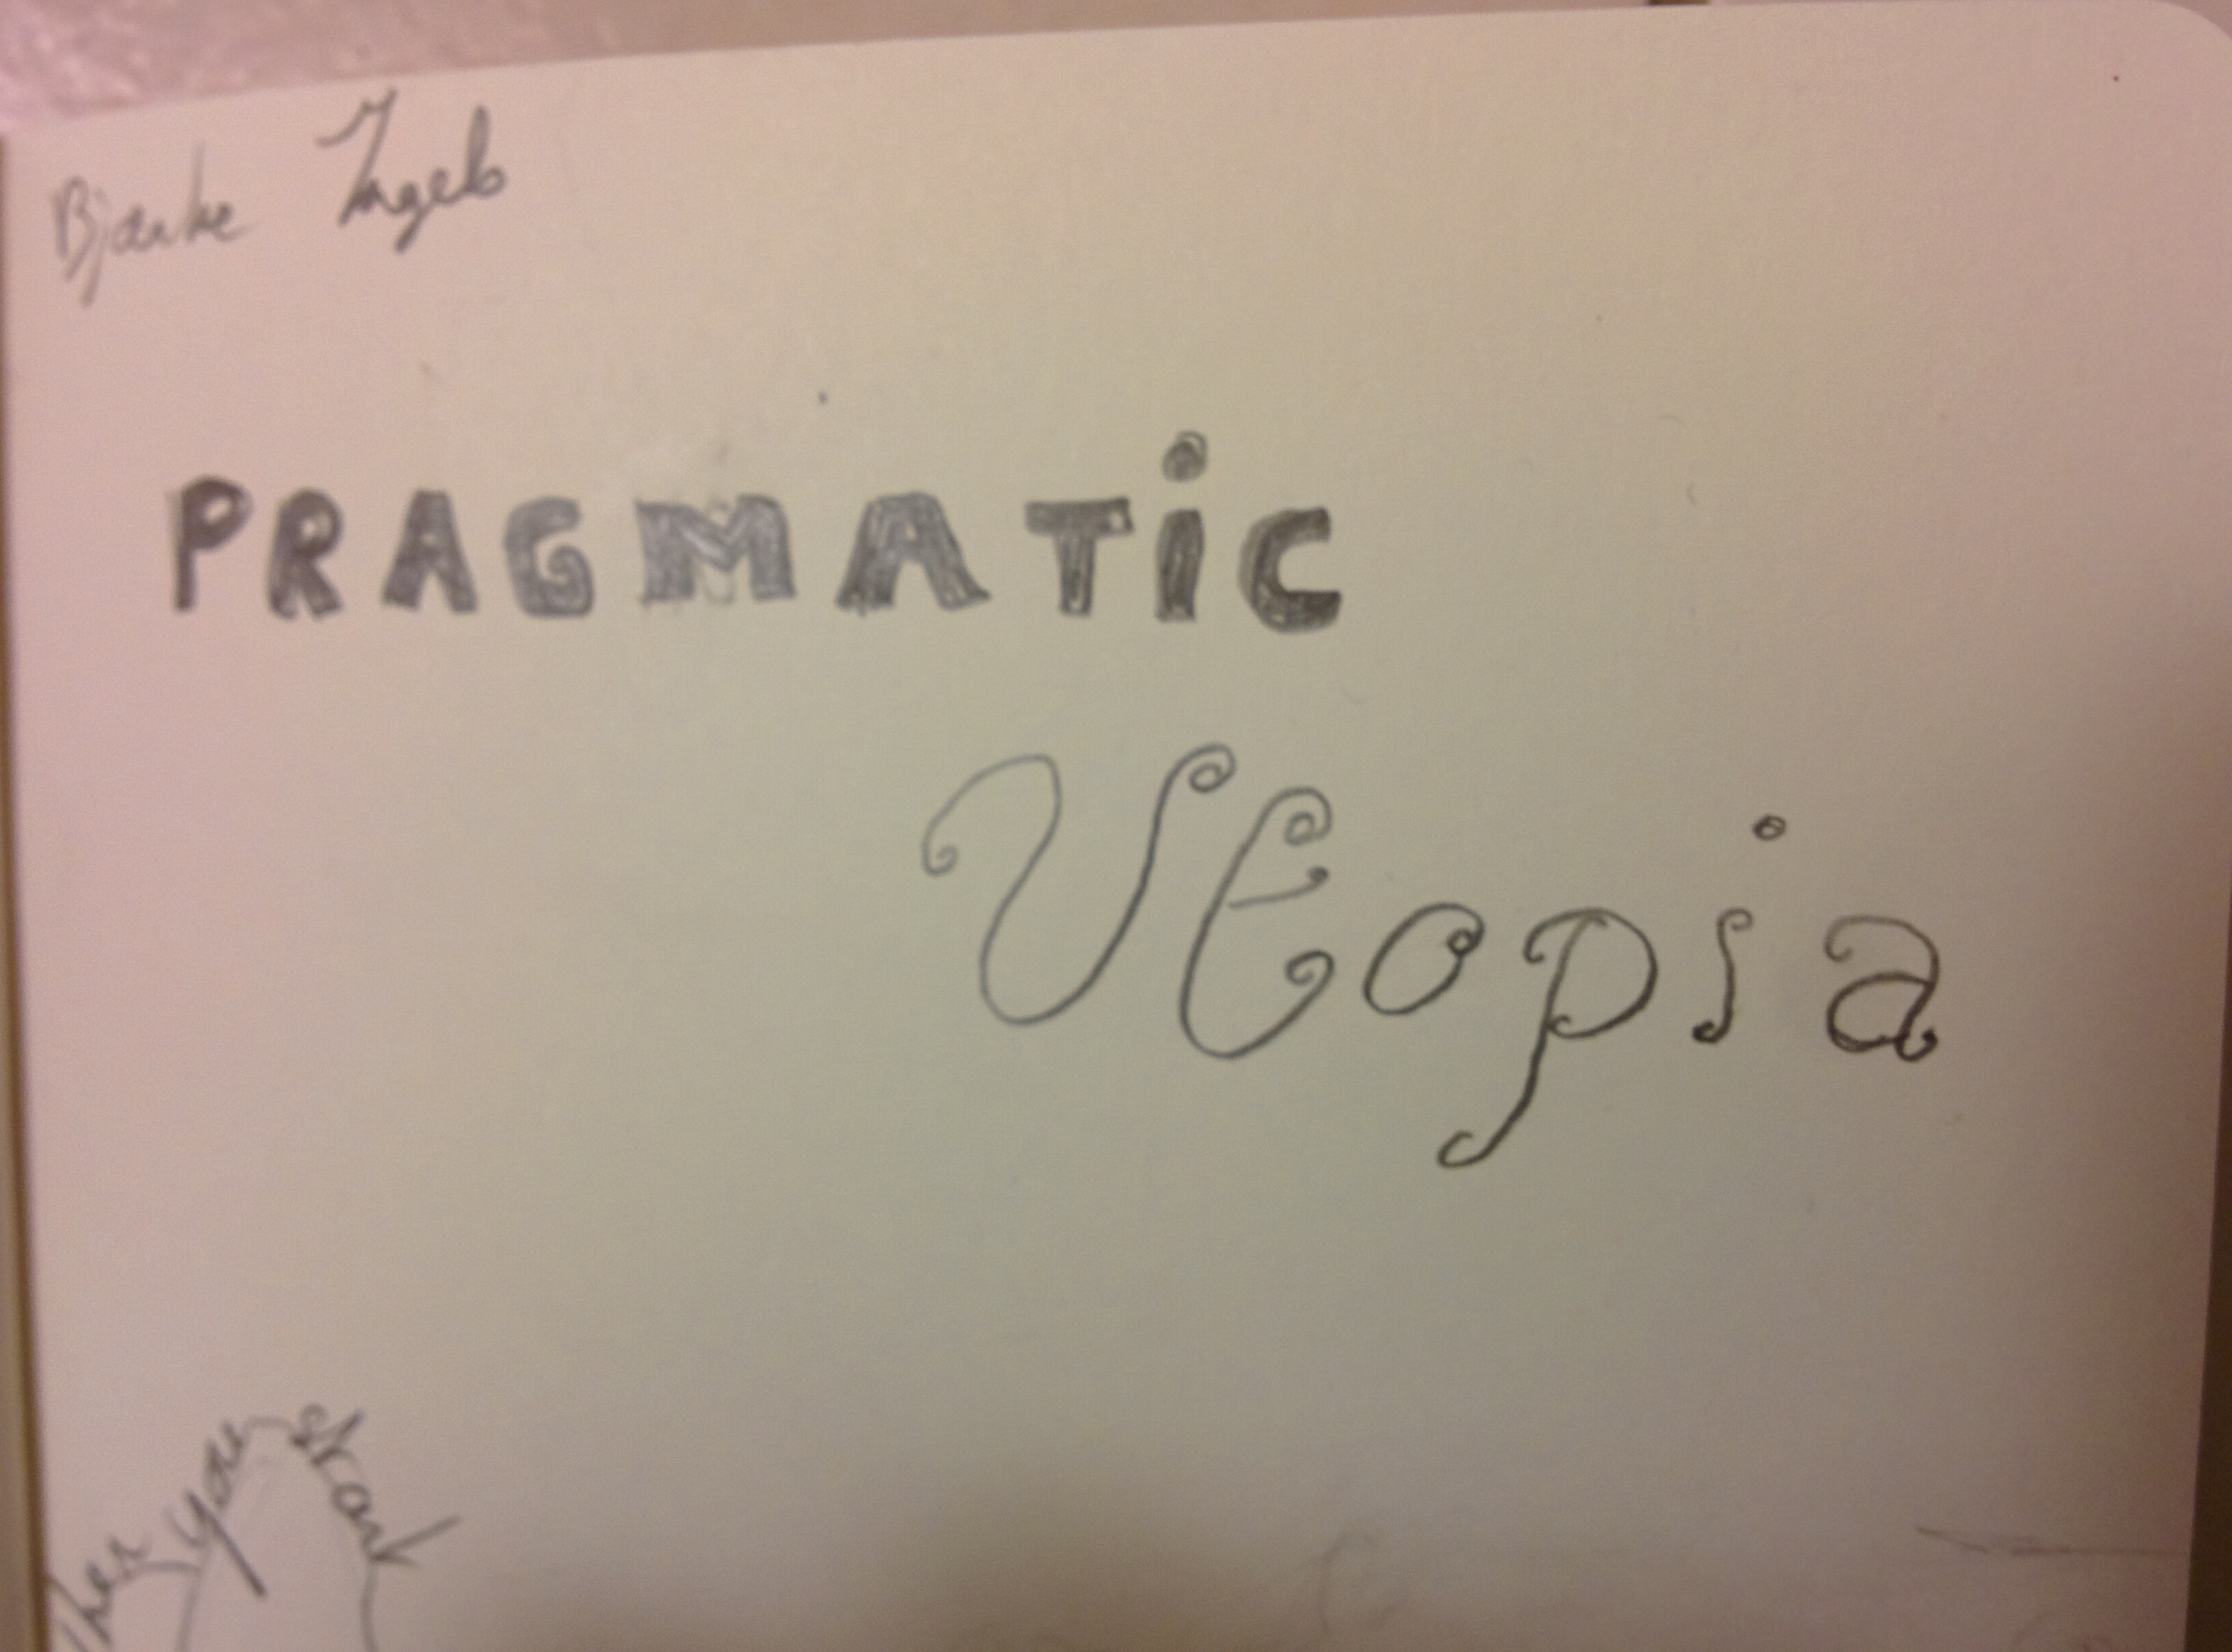 Bjarke Ingels
PRAGMATiC
Utopia
when you start